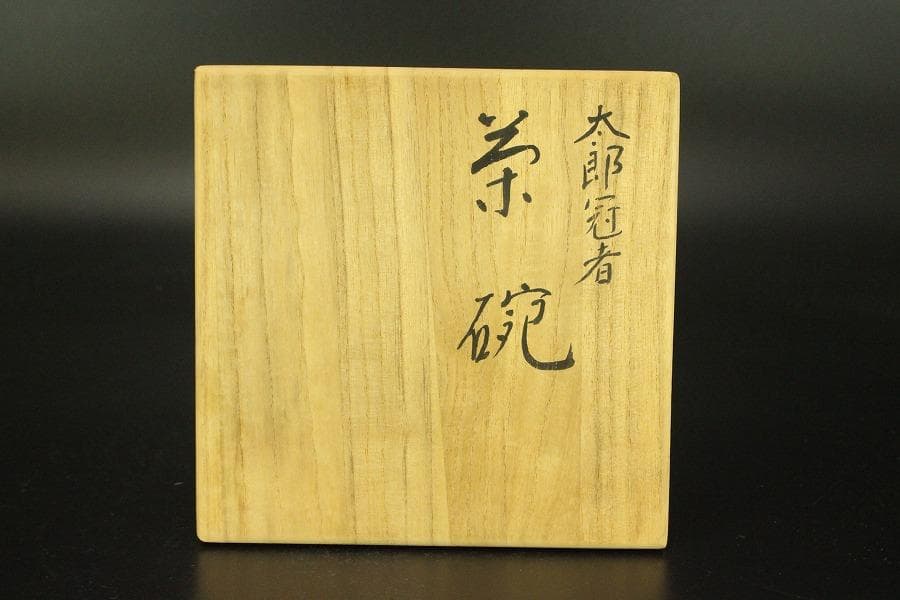 太郎冠者
茶碗